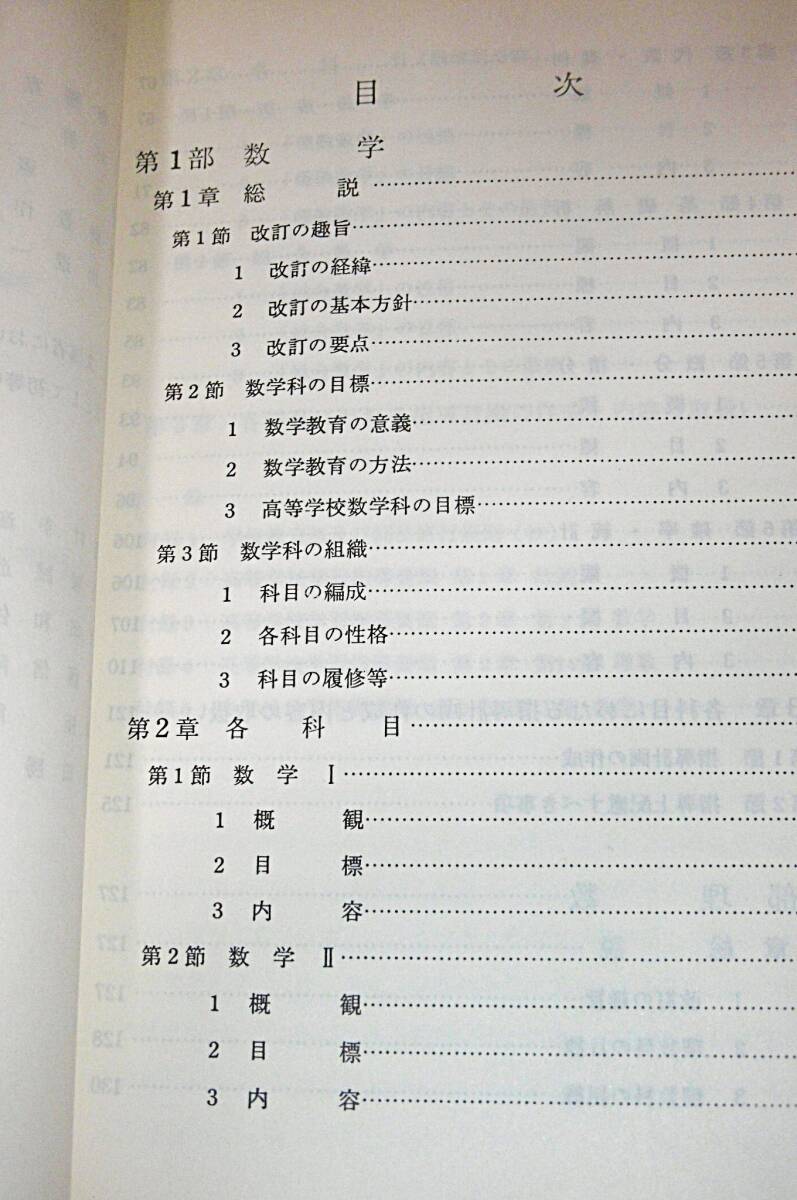 目次
第1部 数学
第1章 総説
第1節 改訂の趣旨
1 改訂の経緯
2 改訂の基本方針
3 改訂の要点
第2節 数学科の目標
1 数学教育の意義
2 数学教育の方法
3 高等学校数学科の目標
第3節 数学科の組織
1 科目の編成
2 各科目の性格
3 科目の履修等
第2章 各科目
第1節 数学 Ⅰ
1 概観
2 目標
3 内容
第2節 数学 Ⅱ
1 概観
2 目標
3 内容